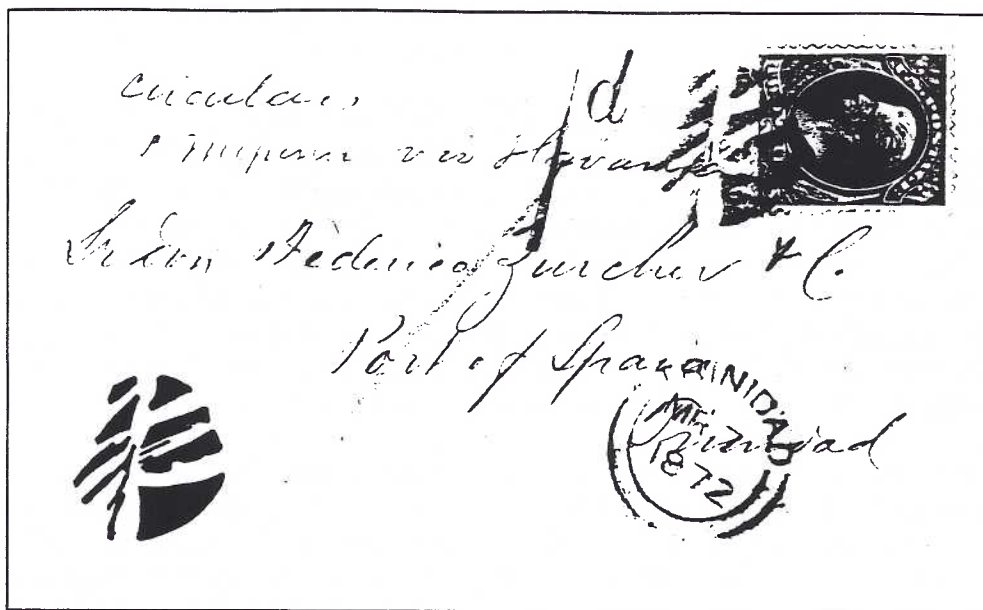 circulars
1d
via Havana
Federico Zurcher & C.
Port of Spain
Trinidad
TRINIDAD
MR
1872